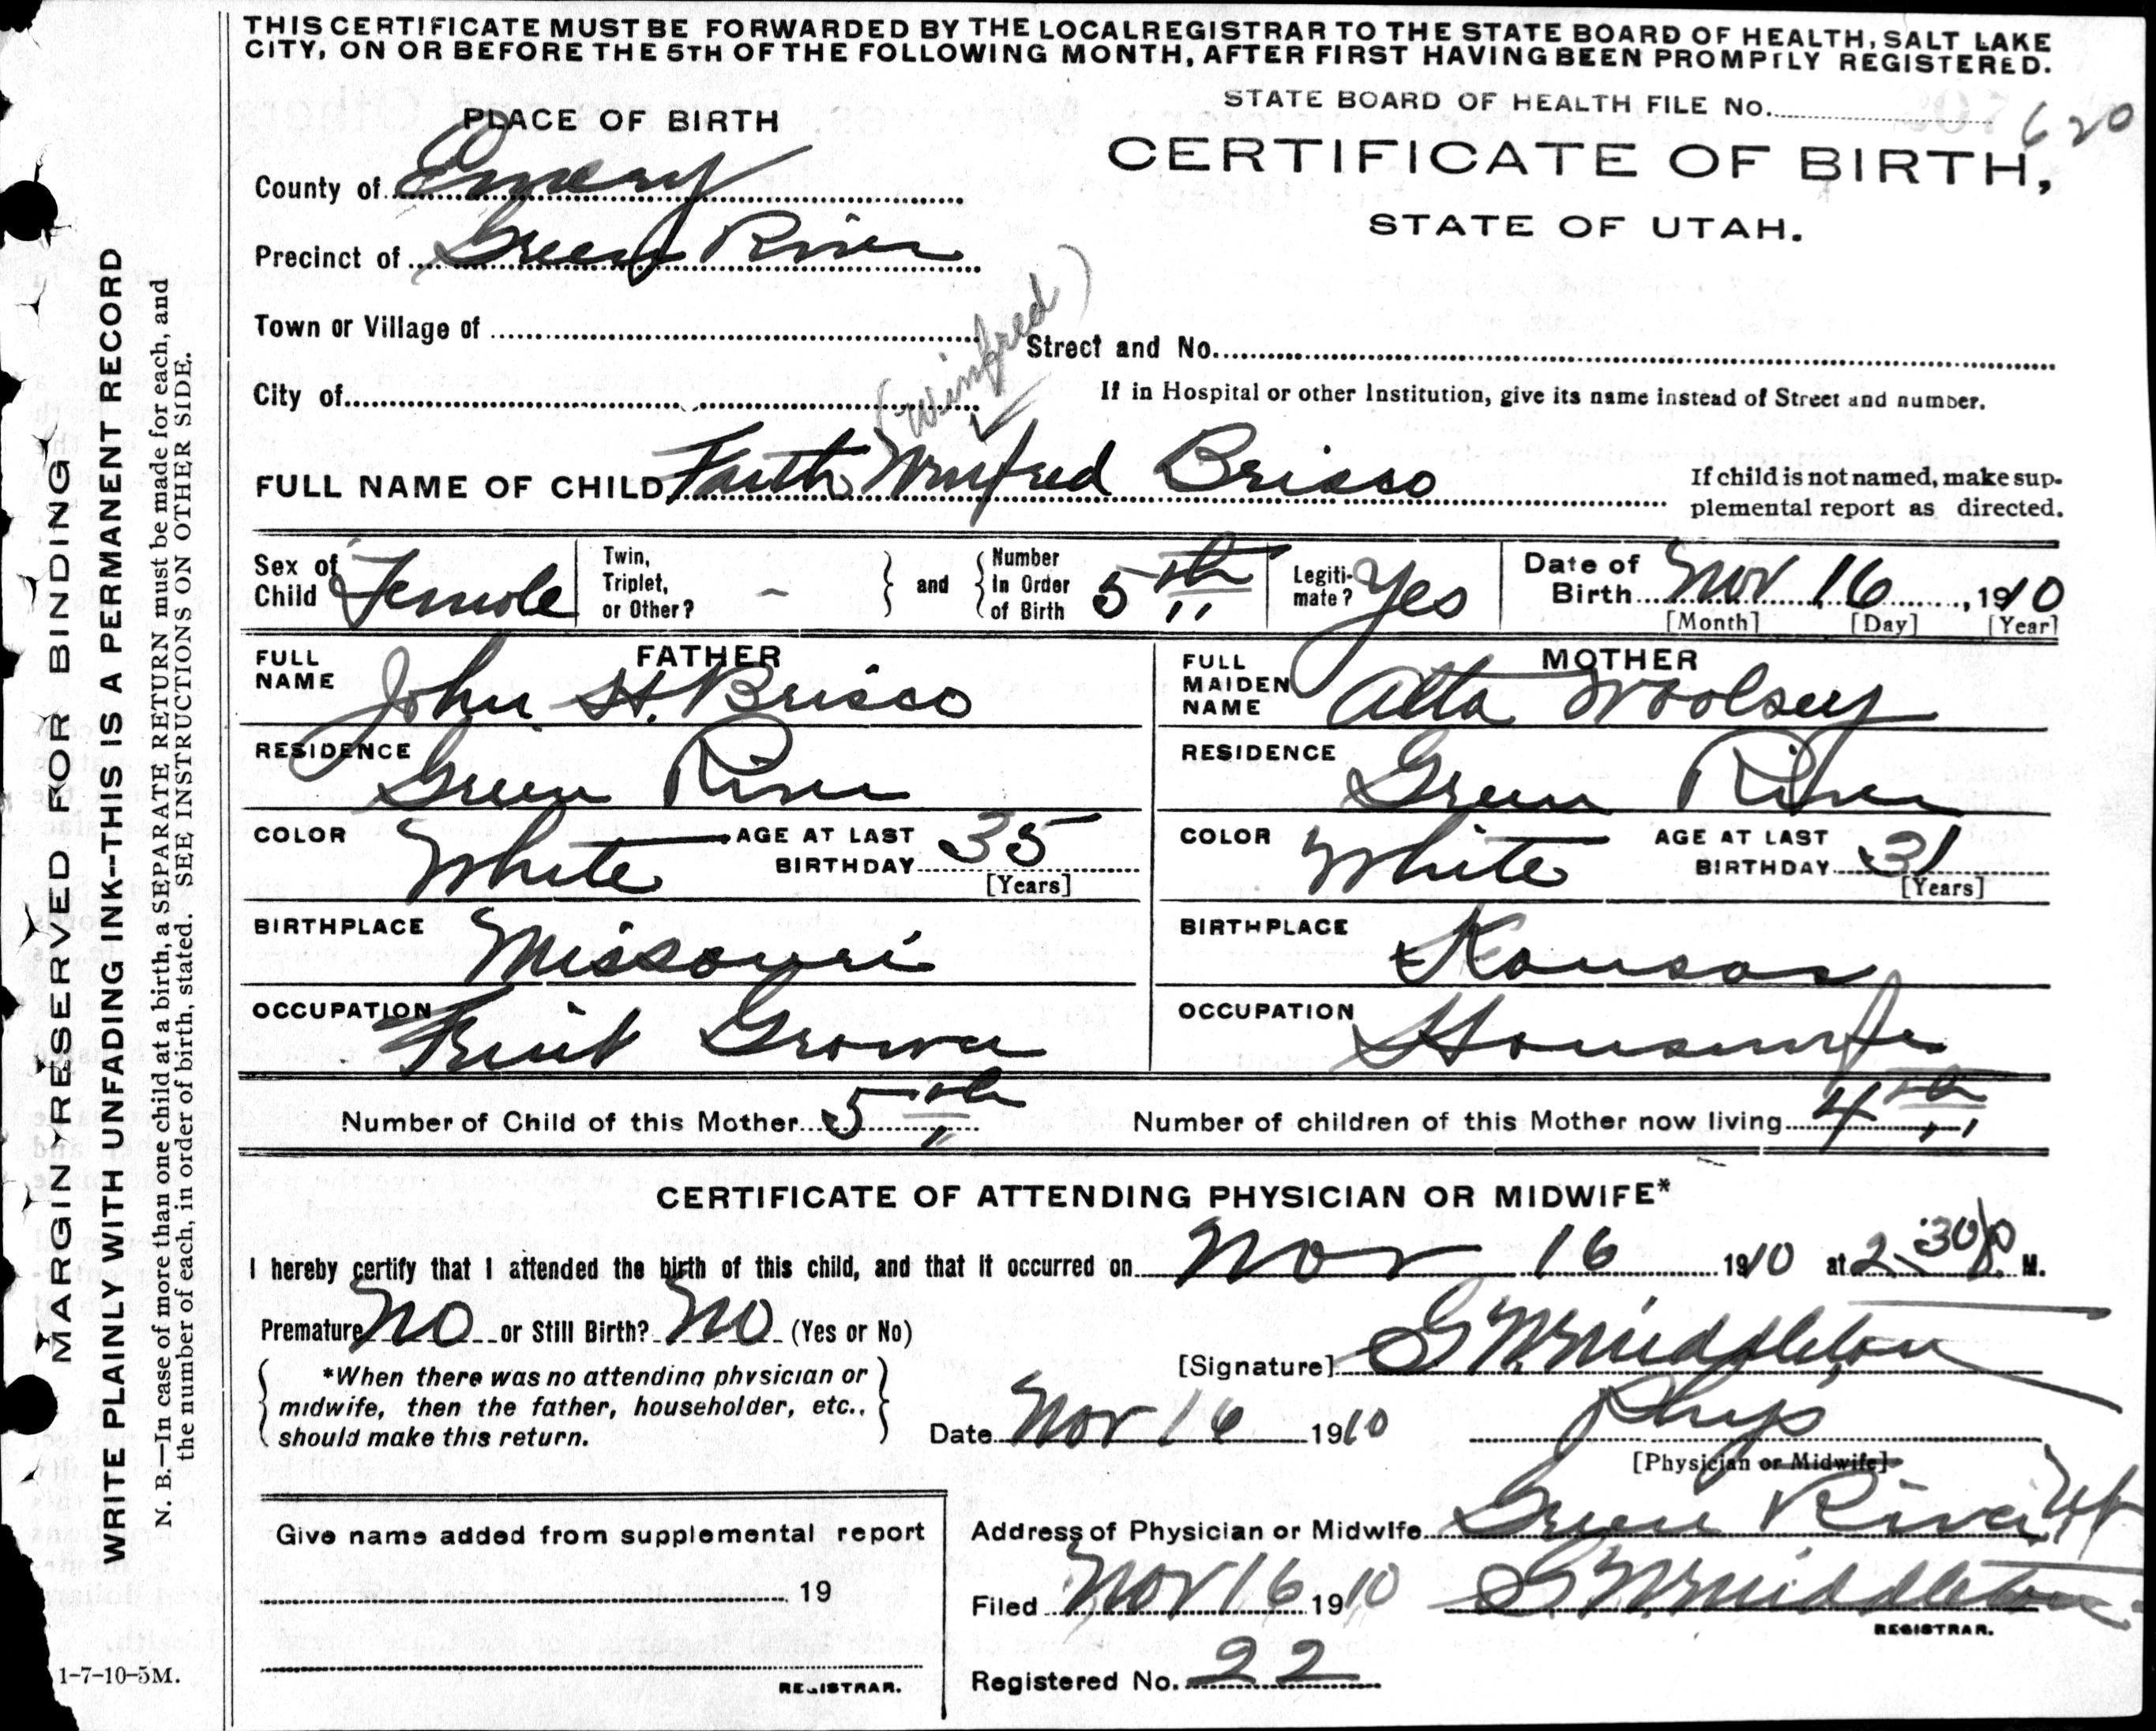 THIS CERTIFICATE MUST BE FORWARDED BY THE LOCAL REGISTRAR TO THE STATE BOARD OF HEALTH, SALT LAKE
CITY, ON OR BEFORE THE 5TH OF THE FOLLOWING MONTH, AFTER FIRST HAVING BEEN PROMPTLY REGISTERED.
STATE BOARD OF HEALTH FILE No. 620
PLACE OF BIRTH
CERTIFICATE OF BIRTH,
STATE OF UTAH.
County of Emery
Precinct of Green River
Town or Village of
Street and No.
City of
If in Hospital or other Institution, give its name instead of Street and number.
(Winifred)
FULL NAME OF CHILD Faith Winifred Brisco
If child is not named, make sup-
plemental report as directed.
Sex of Child Female
Twin, Triplet, or Other? -
and
Number In Order of Birth 5th
Legiti-mate? Yes
Date of Birth Nov 16, 1910
[Month] [Day] [Year]
FATHER
FULL NAME John H. Brisco
MOTHER
FULL MAIDEN NAME Alta Woolsey
RESIDENCE Green River
RESIDENCE Green River
COLOR White AGE AT LAST BIRTHDAY 35 [Years]
COLOR White AGE AT LAST BIRTHDAY 31 [Years]
BIRTHPLACE Missouri
BIRTHPLACE Kansas
OCCUPATION Fruit Grower
OCCUPATION Housewife
Number of Child of this Mother 5th
Number of children of this Mother now living 4th
CERTIFICATE OF ATTENDING PHYSICIAN OR MIDWIFE*
I hereby certify that I attended the birth of this child, and that it occurred on Nov 16 1910 at 2:30 P. M.
Premature NO or Still Birth? NO (Yes or No)
[Signature] G W Middleton
*When there was no attending physician or
midwife, then the father, householder, etc.,
should make this return.
Date Nov 16 1910
Phys
[Physician or Midwife]
Address of Physician or Midwife Green River Ut
Give name added from supplemental report
19
REGISTRAR.
Filed Nov 16 1910 G W Middleton
REGISTRAR.
Registered No. 22
1-7-10-5M.
MARGIN RESERVED FOR BINDING
WRITE PLAINLY WITH UNFADING INK--THIS IS A PERMANENT RECORD
N. B.—In case of more than one child at a birth, a SEPARATE RETURN must be made for each, and
the number of each, in order of birth, stated. SEE INSTRUCTIONS ON OTHER SIDE.